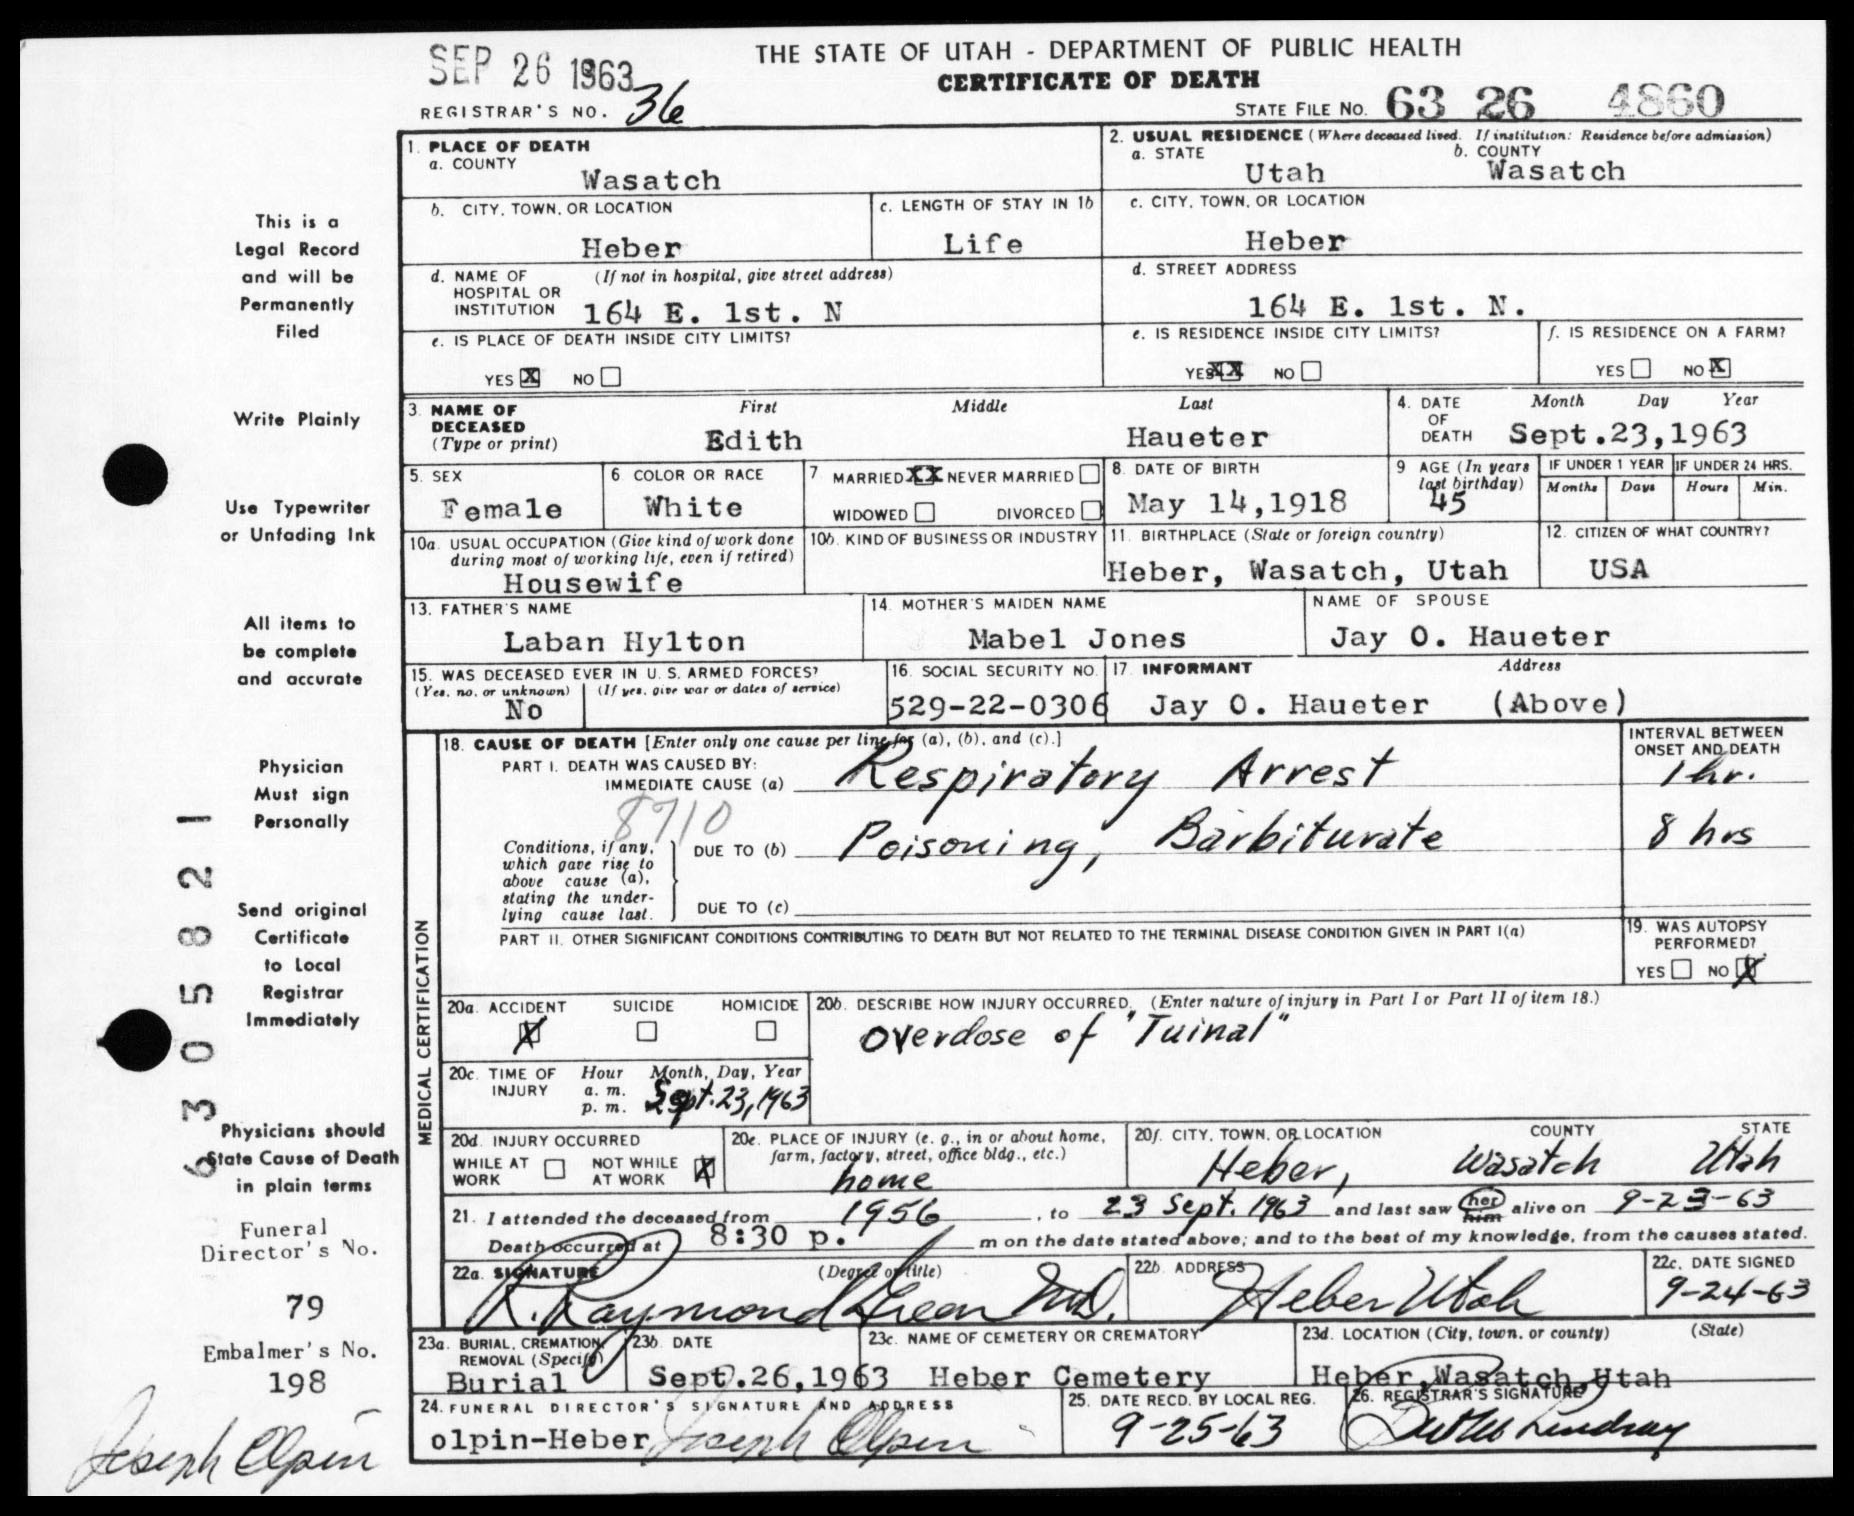 SEP 26 1963
THE STATE OF UTAH - DEPARTMENT OF PUBLIC HEALTH
CERTIFICATE OF DEATH
REGISTRAR'S NO. 36
STATE FILE NO. 63 26 4860
1. PLACE OF DEATH
a. COUNTY
Wasatch
2. USUAL RESIDENCE (Where deceased lived. If institution: Residence before admission)
a. STATE b. COUNTY
Utah Wasatch
b. CITY, TOWN, OR LOCATION
Heber
c. LENGTH OF STAY IN 1b
Life
c. CITY, TOWN, OR LOCATION
Heber
d. NAME OF HOSPITAL OR INSTITUTION (If not in hospital, give street address)
164 E. 1st. N
d. STREET ADDRESS
164 E. 1st. N.
e. IS PLACE OF DEATH INSIDE CITY LIMITS?
YES X NO
e. IS RESIDENCE INSIDE CITY LIMITS?
YES XX NO
f. IS RESIDENCE ON A FARM?
YES NO X
3. NAME OF DECEASED (Type or print)
First Middle Last
Edith Haueter
4. DATE OF DEATH Month Day Year
Sept.23,1963
5. SEX
Female
6 COLOR OR RACE
White
7 MARRIED XX NEVER MARRIED
WIDOWED DIVORCED
8. DATE OF BIRTH
May 14,1918
9 AGE (In years last birthday)
45
IF UNDER 1 YEAR IF UNDER 24 HRS.
Months Days Hours Min.
10a. USUAL OCCUPATION (Give kind of work done during most of working life, even if retired)
Housewife
10b. KIND OF BUSINESS OR INDUSTRY
11. BIRTHPLACE (State or foreign country)
Heber, Wasatch, Utah
12. CITIZEN OF WHAT COUNTRY?
USA
13. FATHER'S NAME
Laban Hylton
14. MOTHER'S MAIDEN NAME
Mabel Jones
NAME OF SPOUSE
Jay O. Haueter
15. WAS DECEASED EVER IN U. S. ARMED FORCES?
(Yes, no, or unknown) (If yes, give war or dates of service)
No
16. SOCIAL SECURITY NO.
529-22-0306
17. INFORMANT Address
Jay O. Haueter (Above)
18. CAUSE OF DEATH [Enter only one cause per line for (a), (b), and (c).]
INTERVAL BETWEEN ONSET AND DEATH
PART I. DEATH WAS CAUSED BY:
IMMEDIATE CAUSE (a) Respiratory Arrest 1 hr.
8710
Conditions, if any, which gave rise to above cause (a), stating the underlying cause last.
DUE TO (b) Poisoning, Barbiturate 8 hrs
DUE TO (c)
PART II. OTHER SIGNIFICANT CONDITIONS CONTRIBUTING TO DEATH BUT NOT RELATED TO THE TERMINAL DISEASE CONDITION GIVEN IN PART I(a)
19. WAS AUTOPSY PERFORMED?
YES NO X
MEDICAL CERTIFICATION
20a. ACCIDENT SUICIDE HOMICIDE
X
20b. DESCRIBE HOW INJURY OCCURRED. (Enter nature of injury in Part I or Part II of item 18.)
Overdose of "Tuinal"
20c. TIME OF INJURY Hour Month, Day, Year
a. m.
p. m. Sept. 23, 1963
20d. INJURY OCCURRED
WHILE AT WORK NOT WHILE AT WORK X
20e. PLACE OF INJURY (e. g., in or about home, farm, factory, street, office bldg., etc.)
home
20f. CITY, TOWN, OR LOCATION COUNTY STATE
Heber, Wasatch Utah
21. I attended the deceased from 1956, to 23 Sept. 1963 and last saw her him alive on 9-23-63
Death occurred at 8:30 p. m on the date stated above; and to the best of my knowledge, from the causes stated.
22a. SIGNATURE (Degree or title)
R. Raymond Green M.D.
22b. ADDRESS
Heber Utah
22c. DATE SIGNED
9-24-63
23a. BURIAL, CREMATION, REMOVAL (Specify)
Burial
23b. DATE
Sept.26,1963
23c. NAME OF CEMETERY OR CREMATORY
Heber Cemetery
23d. LOCATION (City, town, or county) (State)
Heber,Wasatch,Utah
24. FUNERAL DIRECTOR'S SIGNATURE AND ADDRESS
olpin-Heber Joseph Olpin
25. DATE RECD. BY LOCAL REG.
9-25-63
26. REGISTRAR'S SIGNATURE
Lindsay
This is a
Legal Record
and will be
Permanently
Filed
Write Plainly
Use Typewriter
or Unfading Ink
All items to
be complete
and accurate
Physician
Must sign
Personally
Send original
Certificate
to Local
Registrar
Immediately
Physicians should
State Cause of Death
in plain terms
Funeral
Director's No.
79
Embalmer's No.
198
Joseph Olpin
6305821